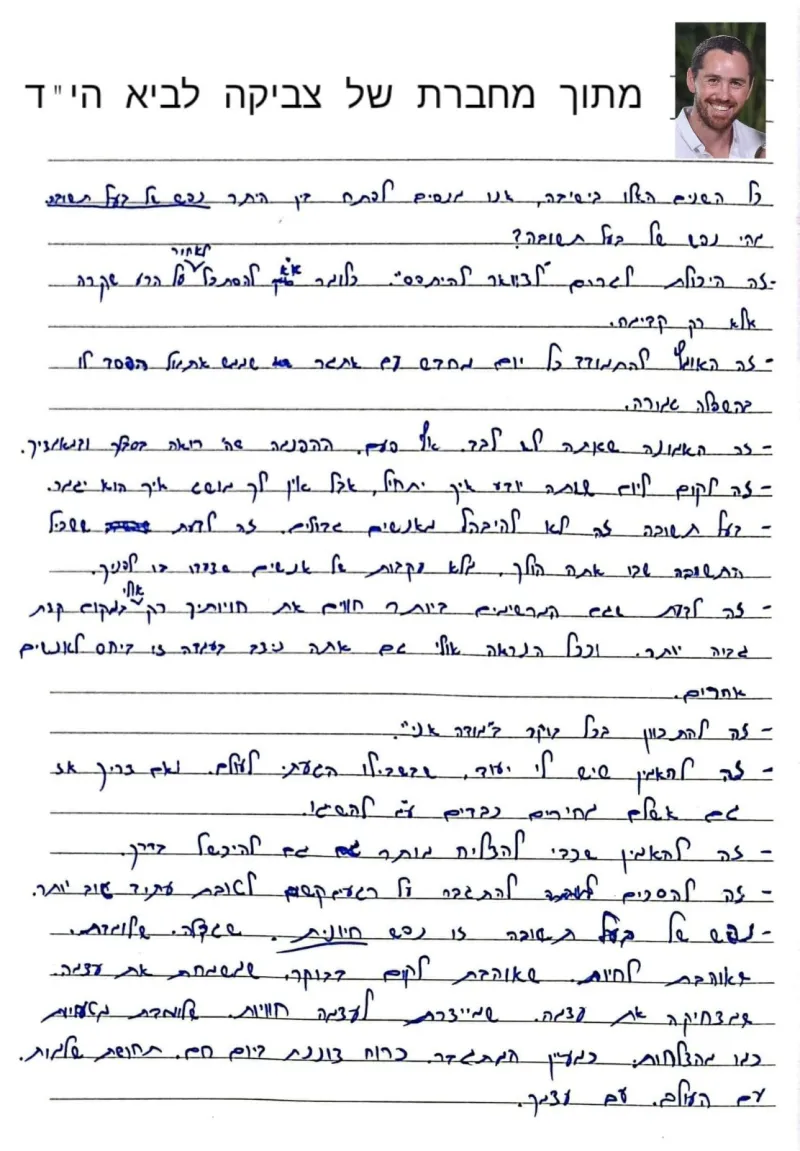 מתוך מחברת של צביקה לביא הי"ד
כל השנים האלו בישיבה, אנו מנסים לפתח בין היתר נפש של בעל תשובה.
מהי נפש של בעל תשובה?
-זה היכולת לגרום "לצוואר להיתפס". כלומר לא להסתכל לאחור על הרע שקרה
אלא רק קדימה.
- זה האומץ להתמודד כל יום מחדש עם אתגר שממש אתמול הפסד לו
בהשפלה גמורה.
- זו האמונה שאתה לא לבד. אף פעם. ההפנמה שה' רואה בסבלך ובמאמציך.
- זה לקום ליום שאתה יודע איך יתחיל, אבל אין לך מושג איך הוא יגמר.
- בעל תשובה זה לא להיבהל מאנשים גדולים. זה לדעת ששביל
התשובה שבו אתה הולך, מלא עקבות של אנשים שצעדו בו לפניך.
- זה לדעת שגם המרשימים ביותר חווים את חוויותיך רק אולי במקום קצת
גבוה יותר. וככל הנראה אולי גם אתה ניצב בעמדה זו ביחס לאנשים
אחרים.
- זה להתכוון בכל בוקר ב"מודה אני".
- זה להאמין שיש לי יעוד, שבשבילו הגעתי לעולם. ואם צריך אז
גם אשלם מחירים כבדים ע"מ להשיגו.
- זה להאמין שכדי להצליח מותר גם להיכשל בדרך.
- זה להסכים להתגבר על רגעים קשים לטובת עתיד טוב יותר.
-נפש של בעל תשובה זו נפש חיונית. שגדלה. שלומדת.
שאוהבת לחיות. שאוהבת לקום בבוקר, שמשמחת את עצמה.
שמצחיקה את עצמה. שמייצרת לעצמה חוויות. שלומדת מטעויות
כמו מהצלחות. כמעיין המתגבר. כרוח צוננת ביום חם. תחושת שלמות.
עם העולם. עם עצמך.